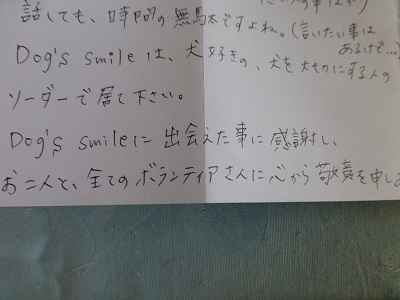 話しても、時間の無駄ですよね。(言いたい事は
あるけど…)
Dog's smileは、犬好きの、犬を大切にする人の
ソーダーで居て下さい。
Dog's smileに出会えた事に感謝し、
お二人と、全てのボランティアさんに心から敬意を申し